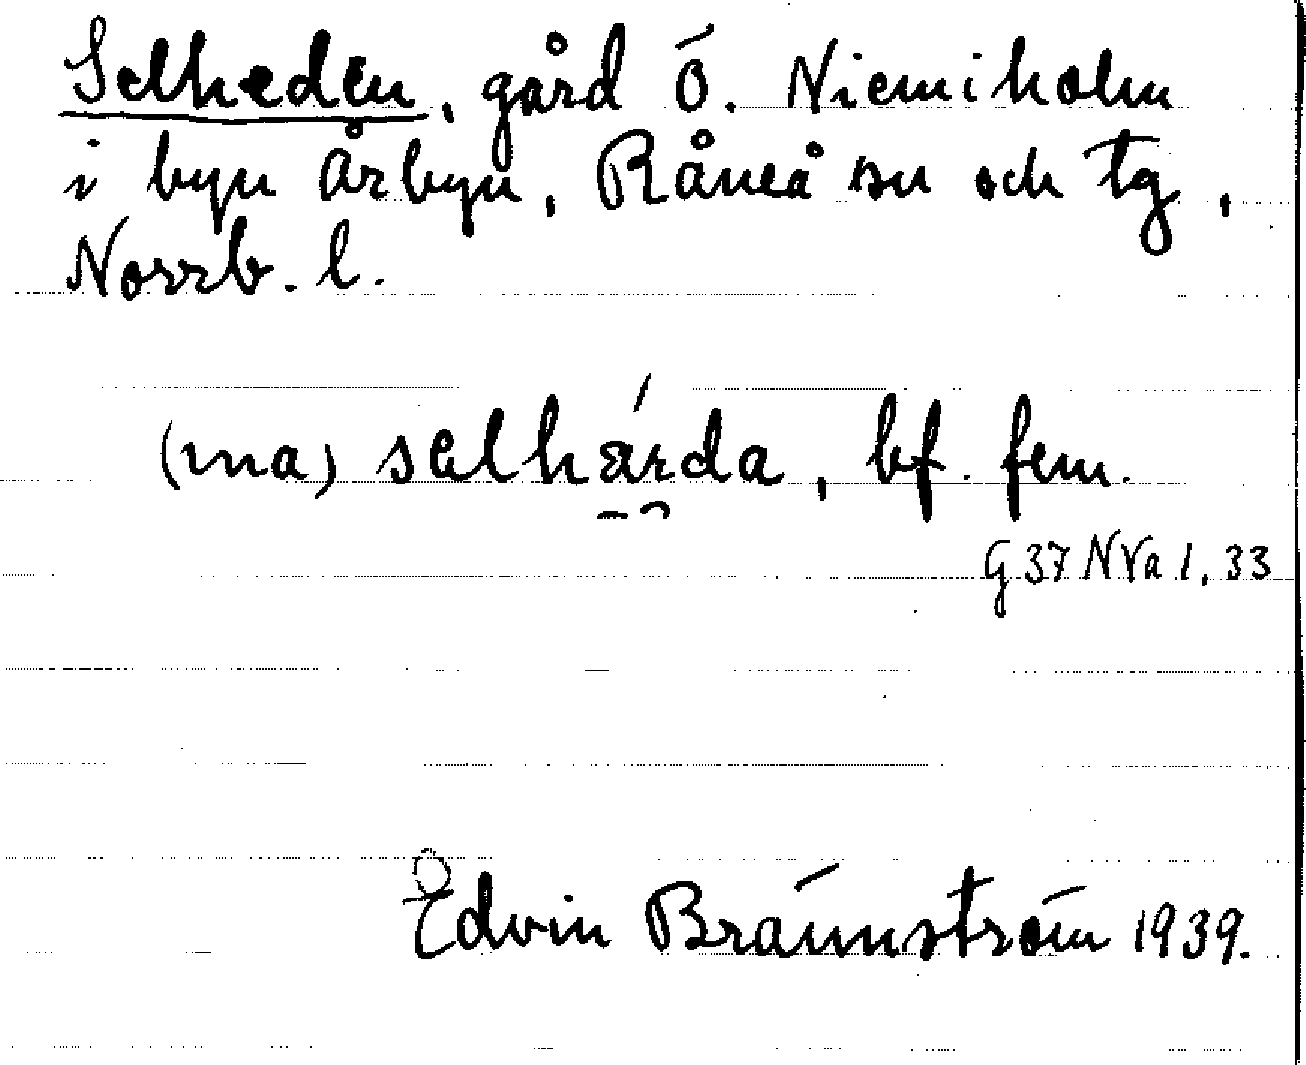 Selheden, gård Ö. Niemiholm
i byn Årbyn, Råneå sn och tg,
Norrb. l.
(ma) sælhárda, bf. fem.
G 37 NVa 1, 33
Edvin Brännström 1939.